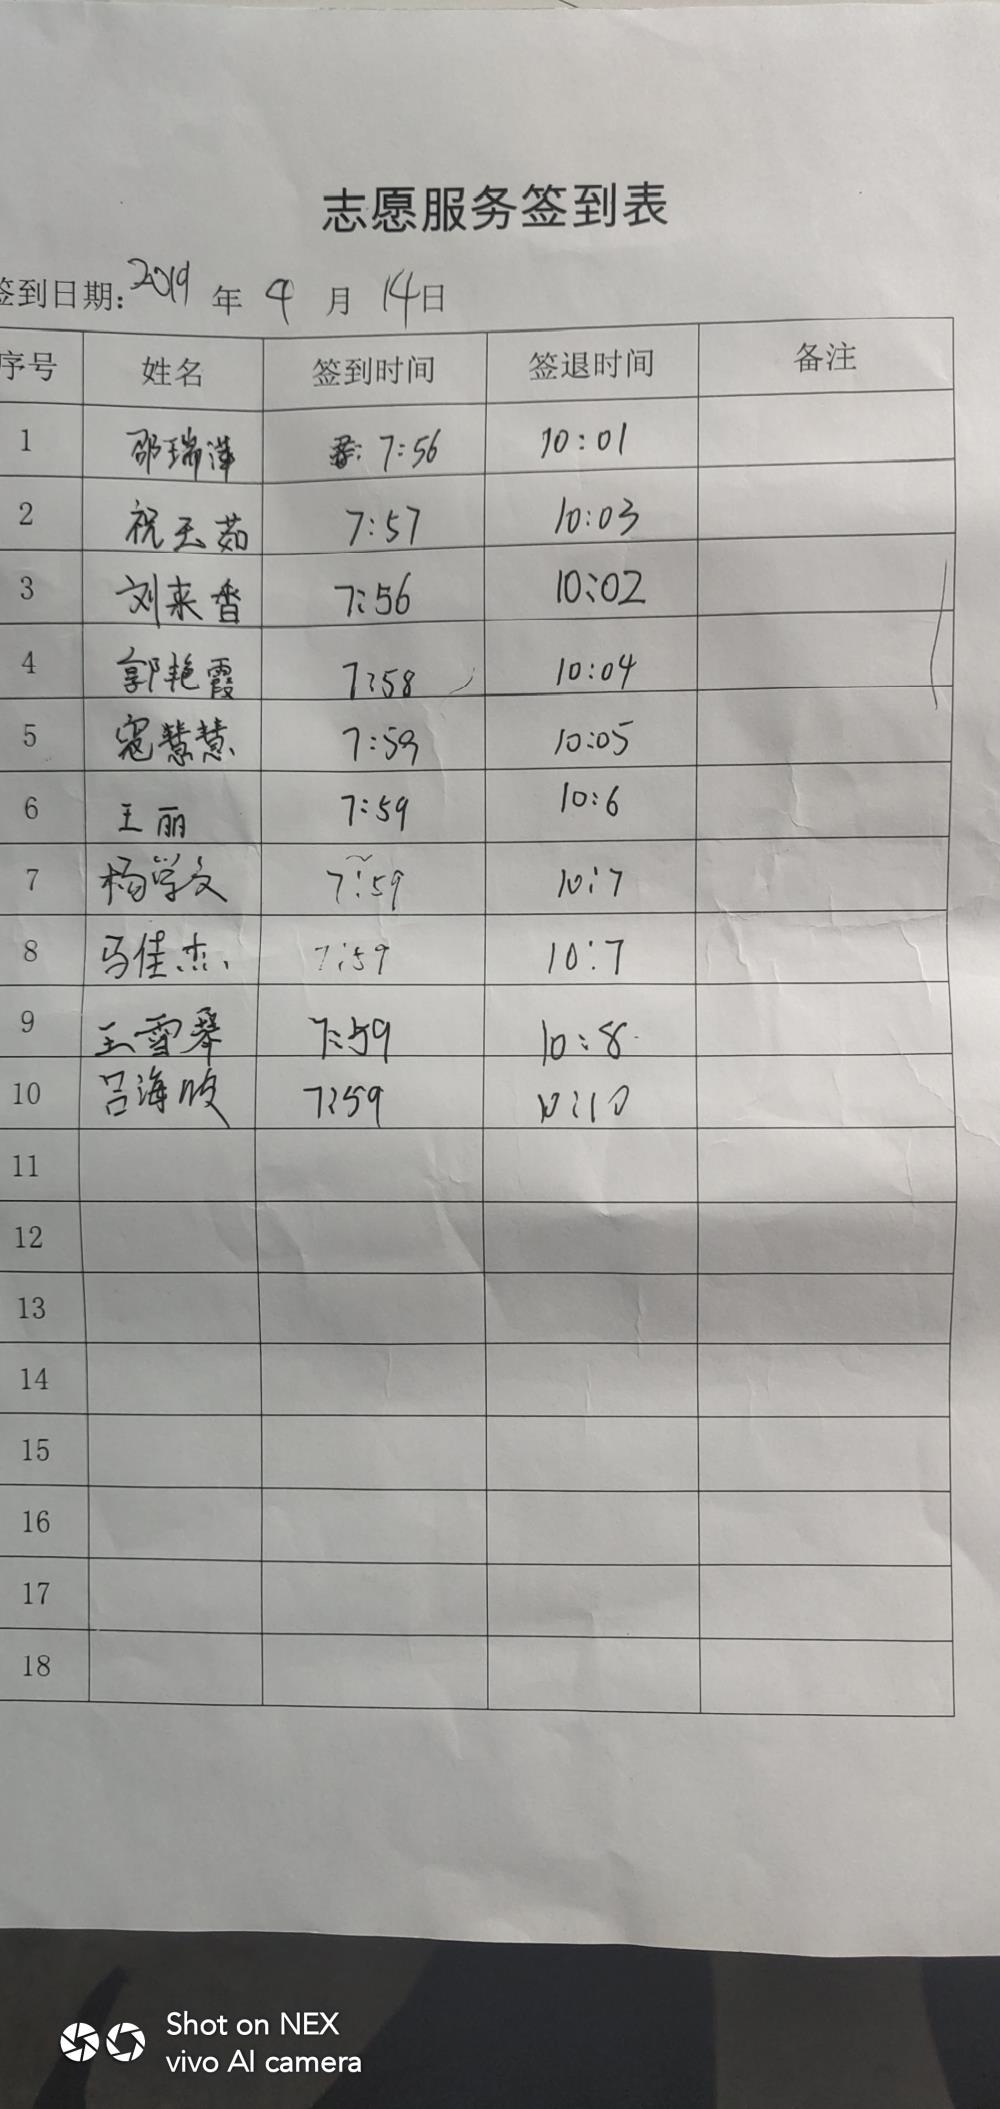 志愿服务签到表
签到日期: 2019 年 4 月 14 日
序号 姓名 签到时间 签退时间 备注
1 邵瑞萍 7:56 10:01
2 祝玉茹 7:57 10:03
3 刘来香 7:56 10:02
4 郭艳霞 7:58 10:04
5 寇慧慧 7:59 10:05
6 王丽 7:59 10:6
7 杨学文 7:59 10:7
8 马佳杰 7:59 10:7
9 王雪琴 7:59 10:8
10 吕海 7:59 10:10
11
12
13
14
15
16
17
18
Shot on NEX
vivo AI camera